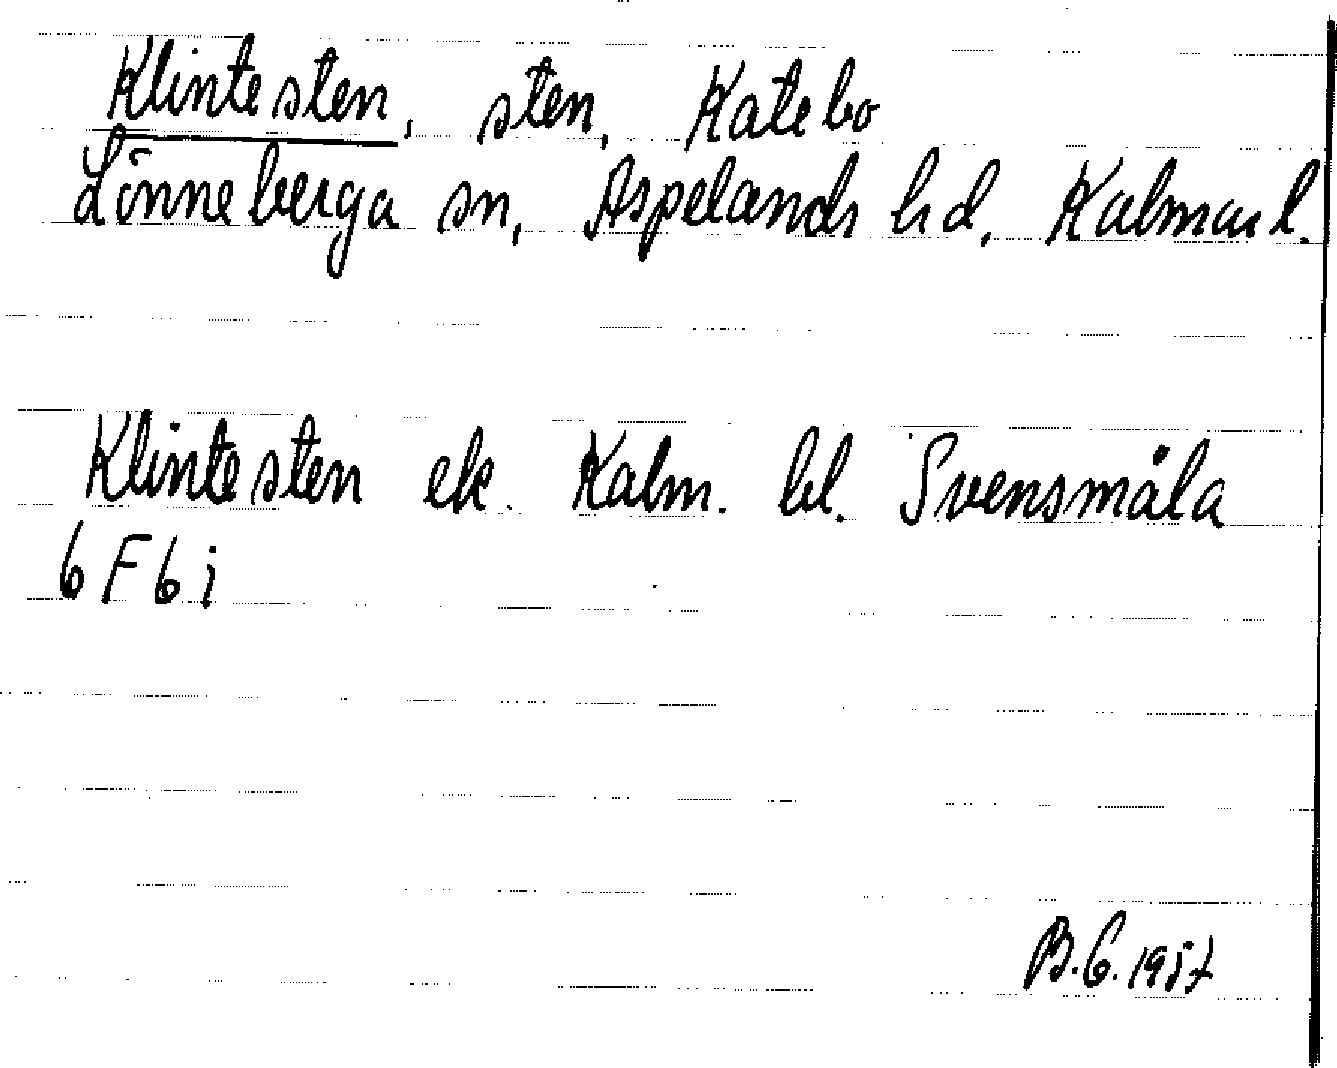 Klintesten, sten, Katebo
Lönneberga sn, Aspelands hd, Kalmar l.
Klintesten ek. Kalm. bl. Svensmåla
6F6i
B.G. 1957